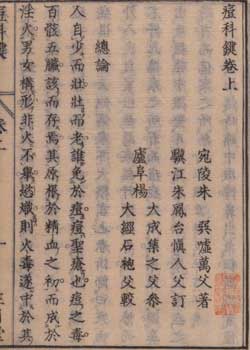 痘科鍵卷上
宛陵朱 巽噓萬父著
騏江朱鳳台愼人父訂
大成集之父叅
廬阜楊
大經石袍父較
總論
人自少而壯壯而老誰免於痘痘聖瘡也痘之毒
百骸五臟該而存焉其原根於精血之初而成於
淫火男女構形非火不集慾熾則火毒遂中於其
痘科鍵